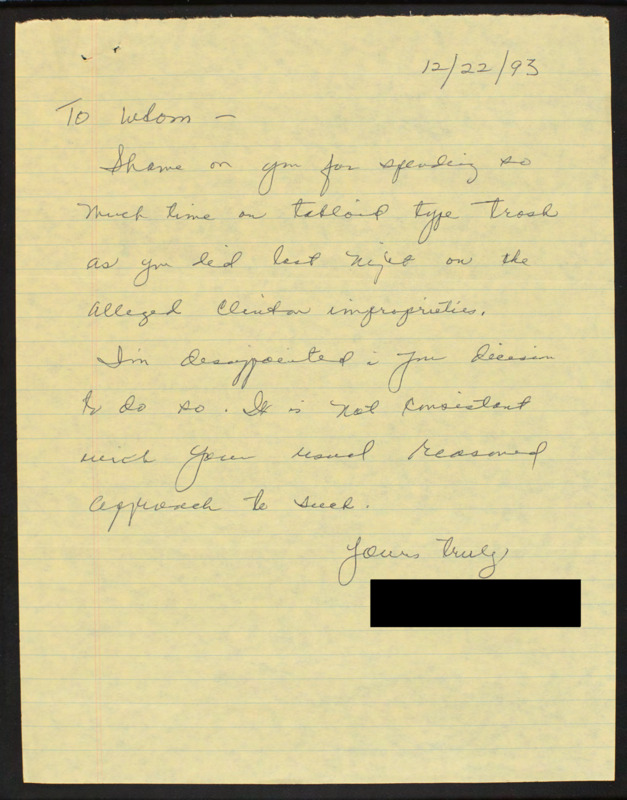 12/22/93
To Whom —
Shame on you for spending so
much time on tabloid type trash
as you did last night on the
alleged Clinton improprieties.
I'm disappointed in your decision
to do so. It is not consistant
with your usual reasoned
approach to such.
Yours truly